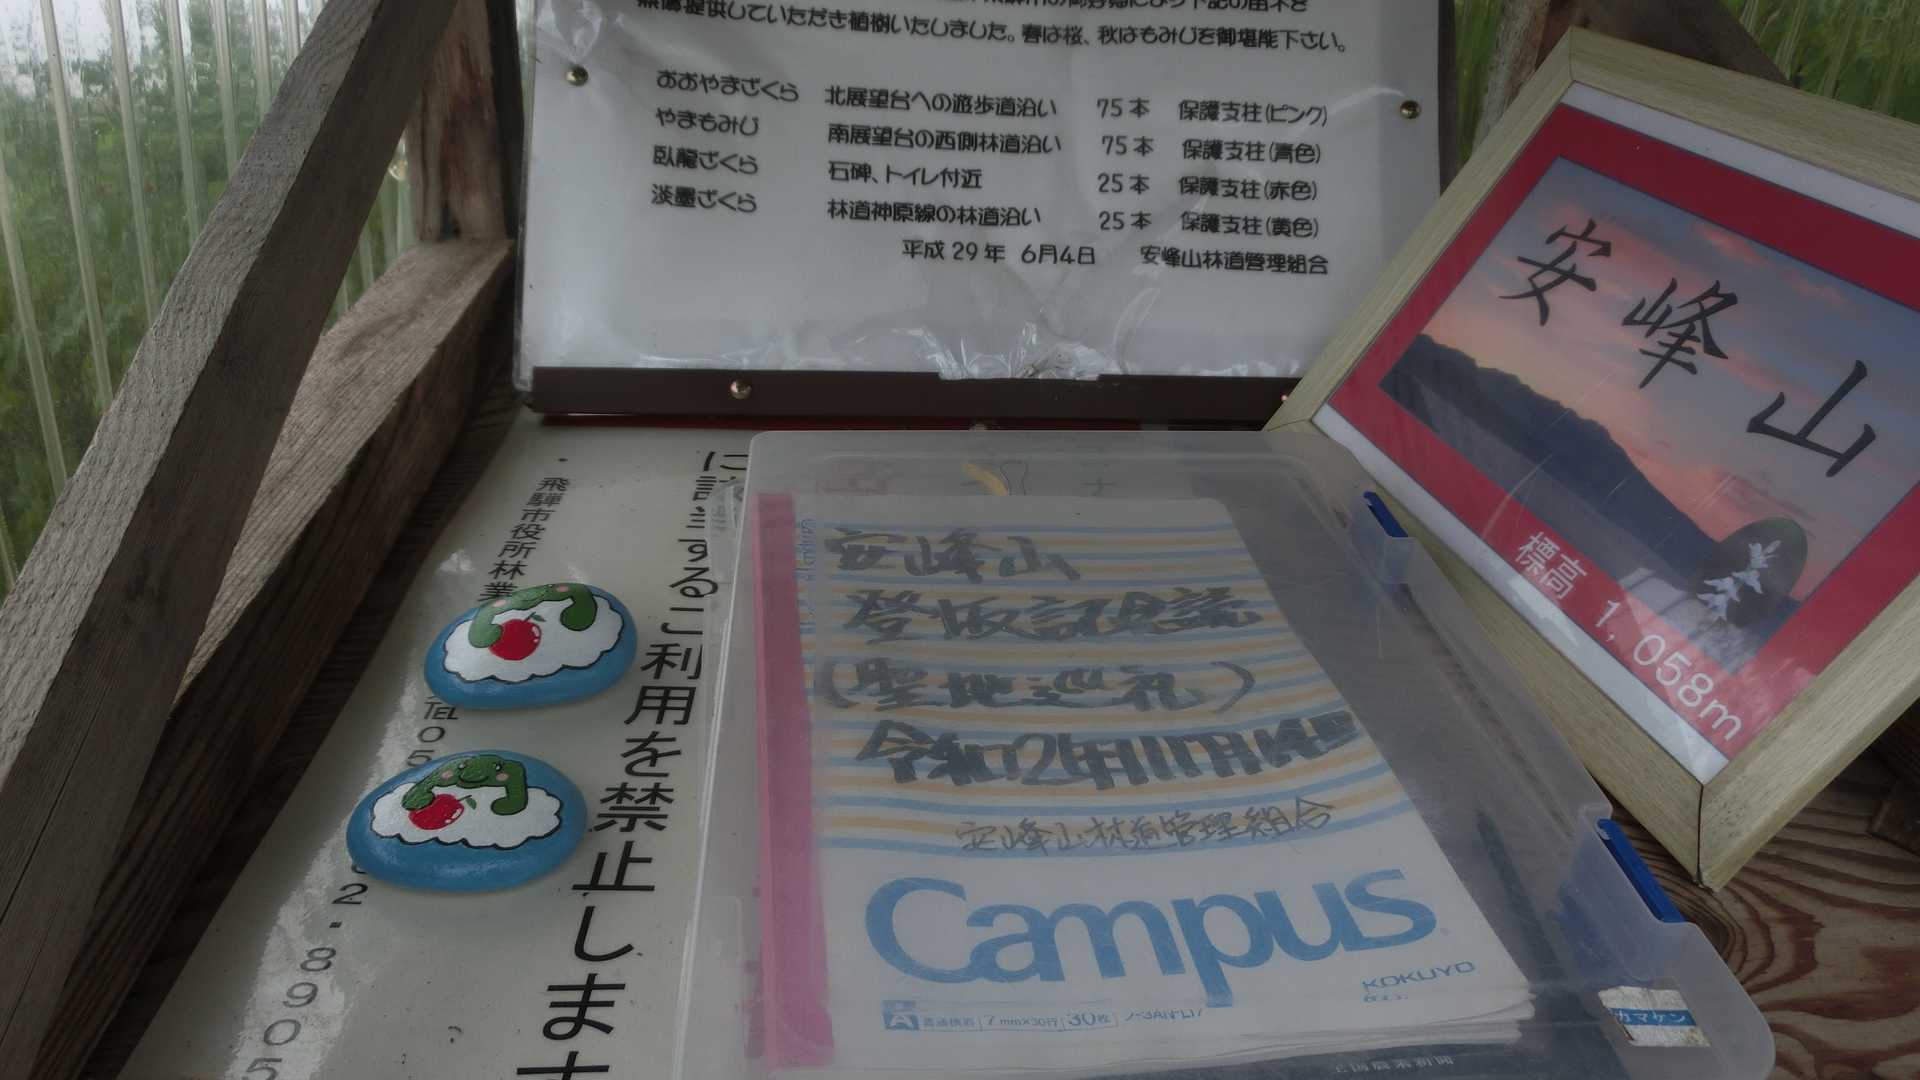 無償提供していただき植樹いたしました。春は桜、秋はもみじを御堪能下さい。
おおやまざくら 北展望台への遊歩道沿い 75本 保護支柱(ピンク)
やまもみじ 南展望台の西側林道沿い 75本 保護支柱(青色)
臥龍ざくら 石碑、トイレ付近 25本 保護支柱(赤色)
淡墨ざくら 林道神原線の林道沿い 25本 保護支柱(黄色)
平成29年 6月4日 安峰山林道管理組合
安峰山
標高 1,058m
するご利用を禁止します
飛騨市役所林業
TEL 05
2-8905
安峰山
登坂記念誌
(聖地巡礼)
令和2年11月
安峰山林道管理組合
Campus
KOKUYO
A 普通横罫 7mm×30行 30枚 ノ-3AN
カマケン
全国農業新聞